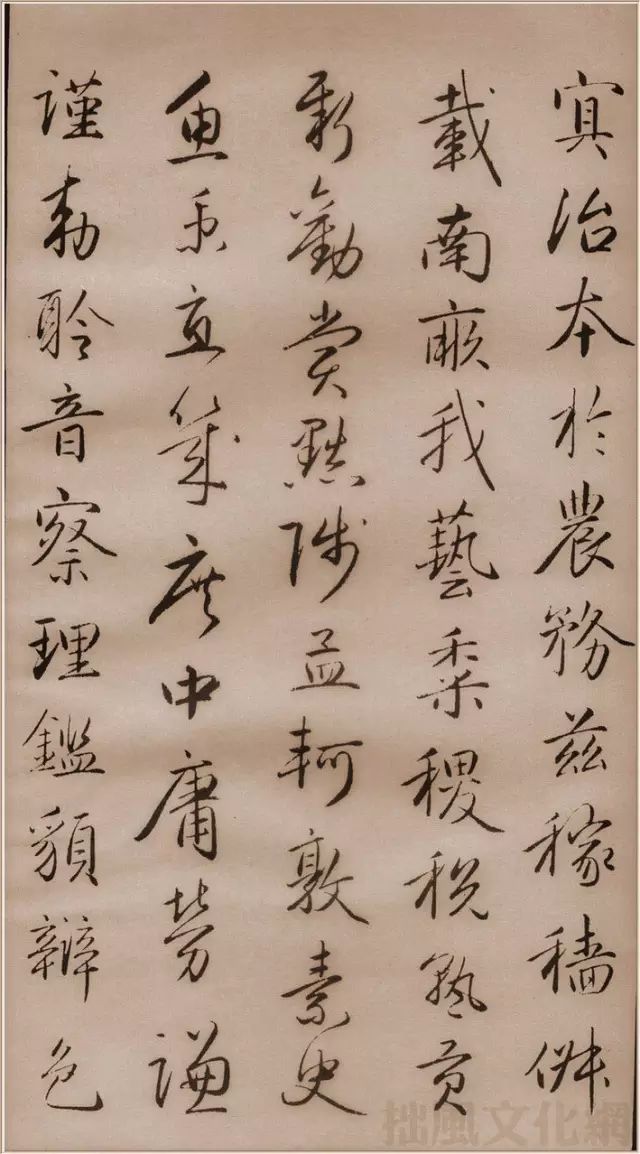 冥治本於農務茲稼穡俶
載南畝我藝黍稷稅熟貢
新勸賞黜陟孟軻敦素史
魚秉直幾庶中庸勞謙
謹敕聆音察理鑑貌辯色
拙風文化網